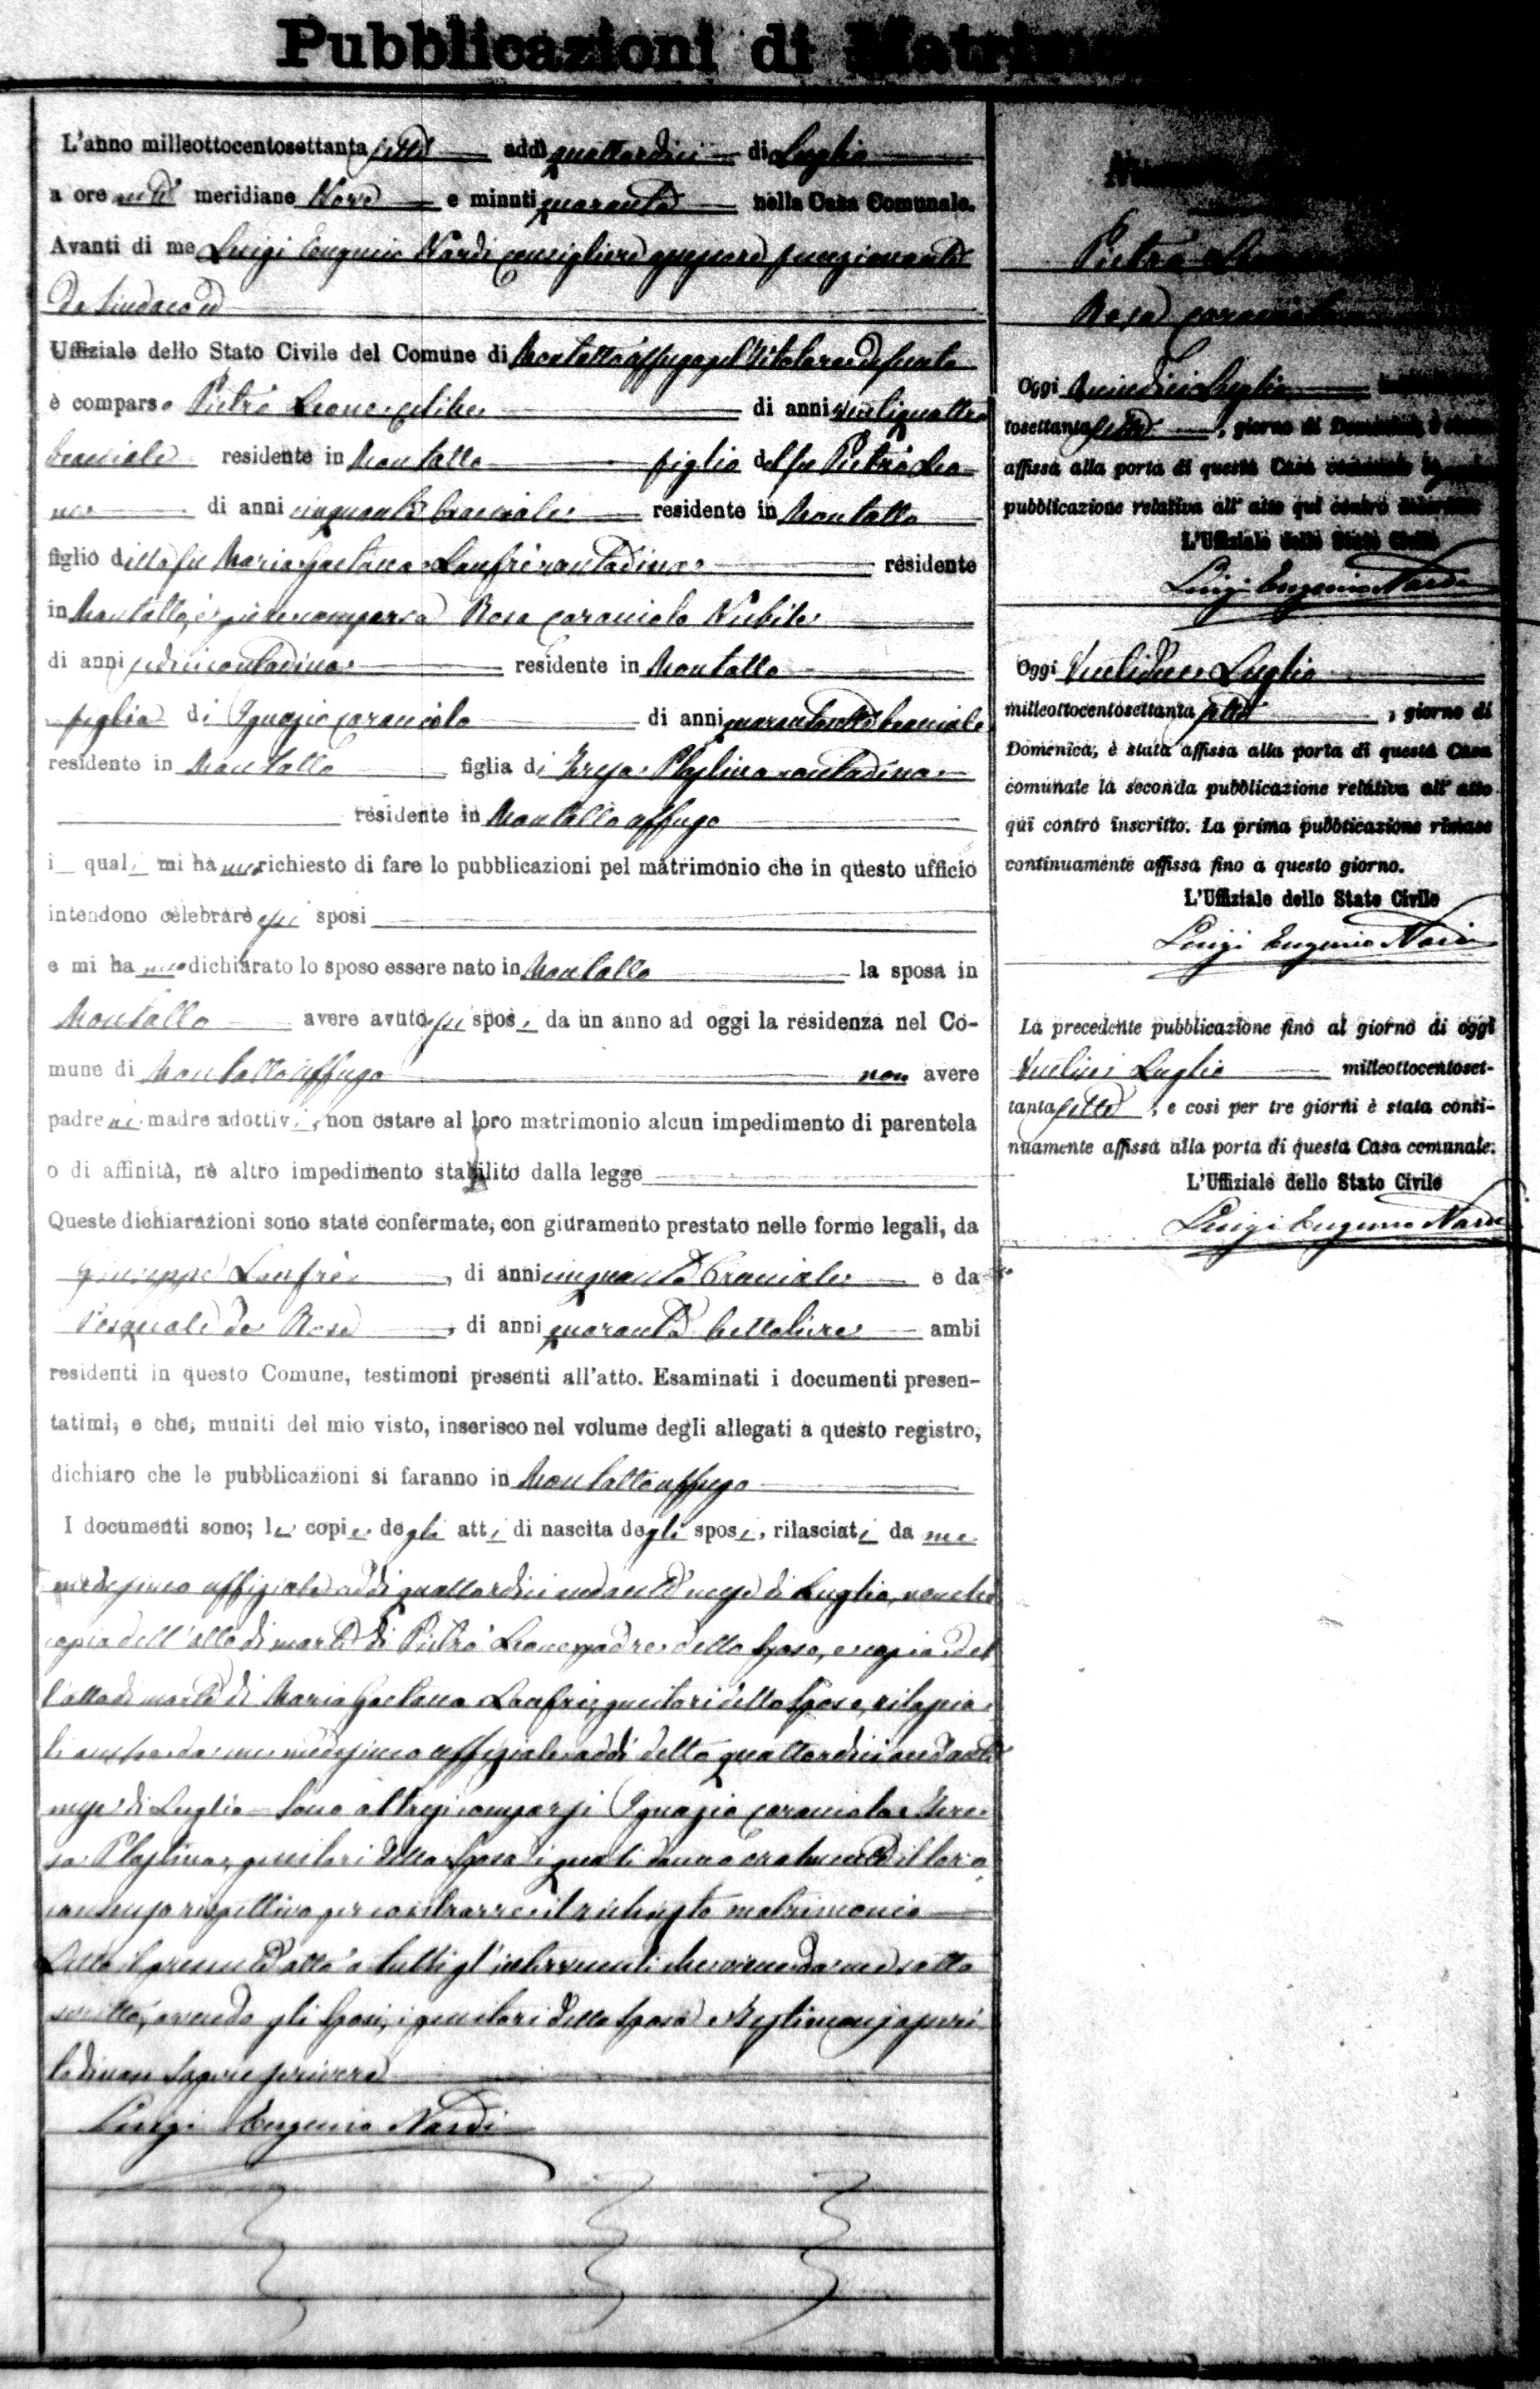 Pubblicazioni di Matrim
L'anno milleottocentosettanta sette addì quattordici di Luglio
a ore anti meridiane Nove e minuti quaranta nella Casa Comunale.
Avanti di me Luigi Eugenio Nardi consigliere funzionante
da Sindaco ed
Uffiziale dello Stato Civile del Comune di Montalto Uffugo pel titolare defunto
è comparso Pietro Leone celibe di anni ventiquattro
bracciale residente in Montalto figlio del fu Pietro Leo-
ne di anni cinquanta bracciale residente in Montalto
figlio della fu Maria Gaetana Lanfri contadina residente
in Montalto, è pure comparsa Rosa Caracciolo Nubile
di anni sedici contadina residente in Montalto
figlia di Ignazio Caracciolo di anni quarantasette bracciale
residente in Montalto figlia di Teresa Plastina contadina
residente in Montalto Uffugo
i quali mi hanno richiesto di fare le pubblicazioni pel matrimonio che in questo ufficio
intendono celebrare essi sposi
e mi hanno dichiarato lo sposo essere nato in Montalto la sposa in
Montalto avere avuto essi sposi da un anno ad oggi la residenza nel Co-
mune di Montalto Uffugo non avere
padre nè madre adottivi, non ostare al loro matrimonio alcun impedimento di parentela
o di affinità, nè altro impedimento stabilito dalla legge
Queste dichiarazioni sono state confermate, con giuramento prestato nelle forme legali, da
Giuseppe Lanfri, di anni cinquanta bracciale e da
Pasquale de Rose, di anni quaranta bettoliere ambi
residenti in questo Comune, testimoni presenti all'atto. Esaminati i documenti presen-
tatimi, e che, muniti del mio visto, inserisco nel volume degli allegati a questo registro,
dichiaro che le pubblicazioni si faranno in Montalto Uffugo
I documenti sono; le copie degli atti di nascita degli sposi, rilasciati da me
medesimo uffiziale addì quattordici andante mese di Luglio, nonchè
copia dell'atto di morte di Pietro Leone padre dello sposo, e copia del
l'atto di morte di Maria Gaetana Lanfri, genitori dello sposo, rilascia-
ti da me medesimo uffiziale addì detto quattordici andante
mese di Luglio Sono altresì comparsi Ignazio Caracciolo e Tere-
sa Plastina, genitori della sposa i quali danno oralmente il loro
consenso rispettivo per contrarre il richiesto matrimonio
Letto il presente atto a tutti gl'intervenuti viene da me sotto
scritto, avendo gli sposi, i genitori della sposa e testimoni asseri
to di non sapere scrivere
Luigi Eugenio Nardi
Pietro
Rosa Caracciolo
Oggi Quindici Luglio
tosettanta sette, giorno di Domenica, è stata
affissa alla porta di questa Casa comunale la
pubblicazione relativa all'atto qui contro inscritto
L'Uffiziale dello Stato Civile
Luigi Eugenio Nardi
Oggi Ventidue Luglio
milleottocentosettanta sette, giorno di
Domenica, è stata affissa alla porta di questa Casa
comunale la seconda pubblicazione relativa all'atto
qui contro inscritto. La prima pubblicazione rimase
continuamente affissa fino a questo giorno.
L'Uffiziale dello Stato Civile
Luigi Eugenio Nardi
La precedente pubblicazione fino al giorno di oggi
Luglio milleottocentoset-
tanta sette, e così per tre giorni è stata conti-
nuamente affissa alla porta di questa Casa comunale.
L'Uffiziale dello Stato Civile
Luigi Eugenio Nardi